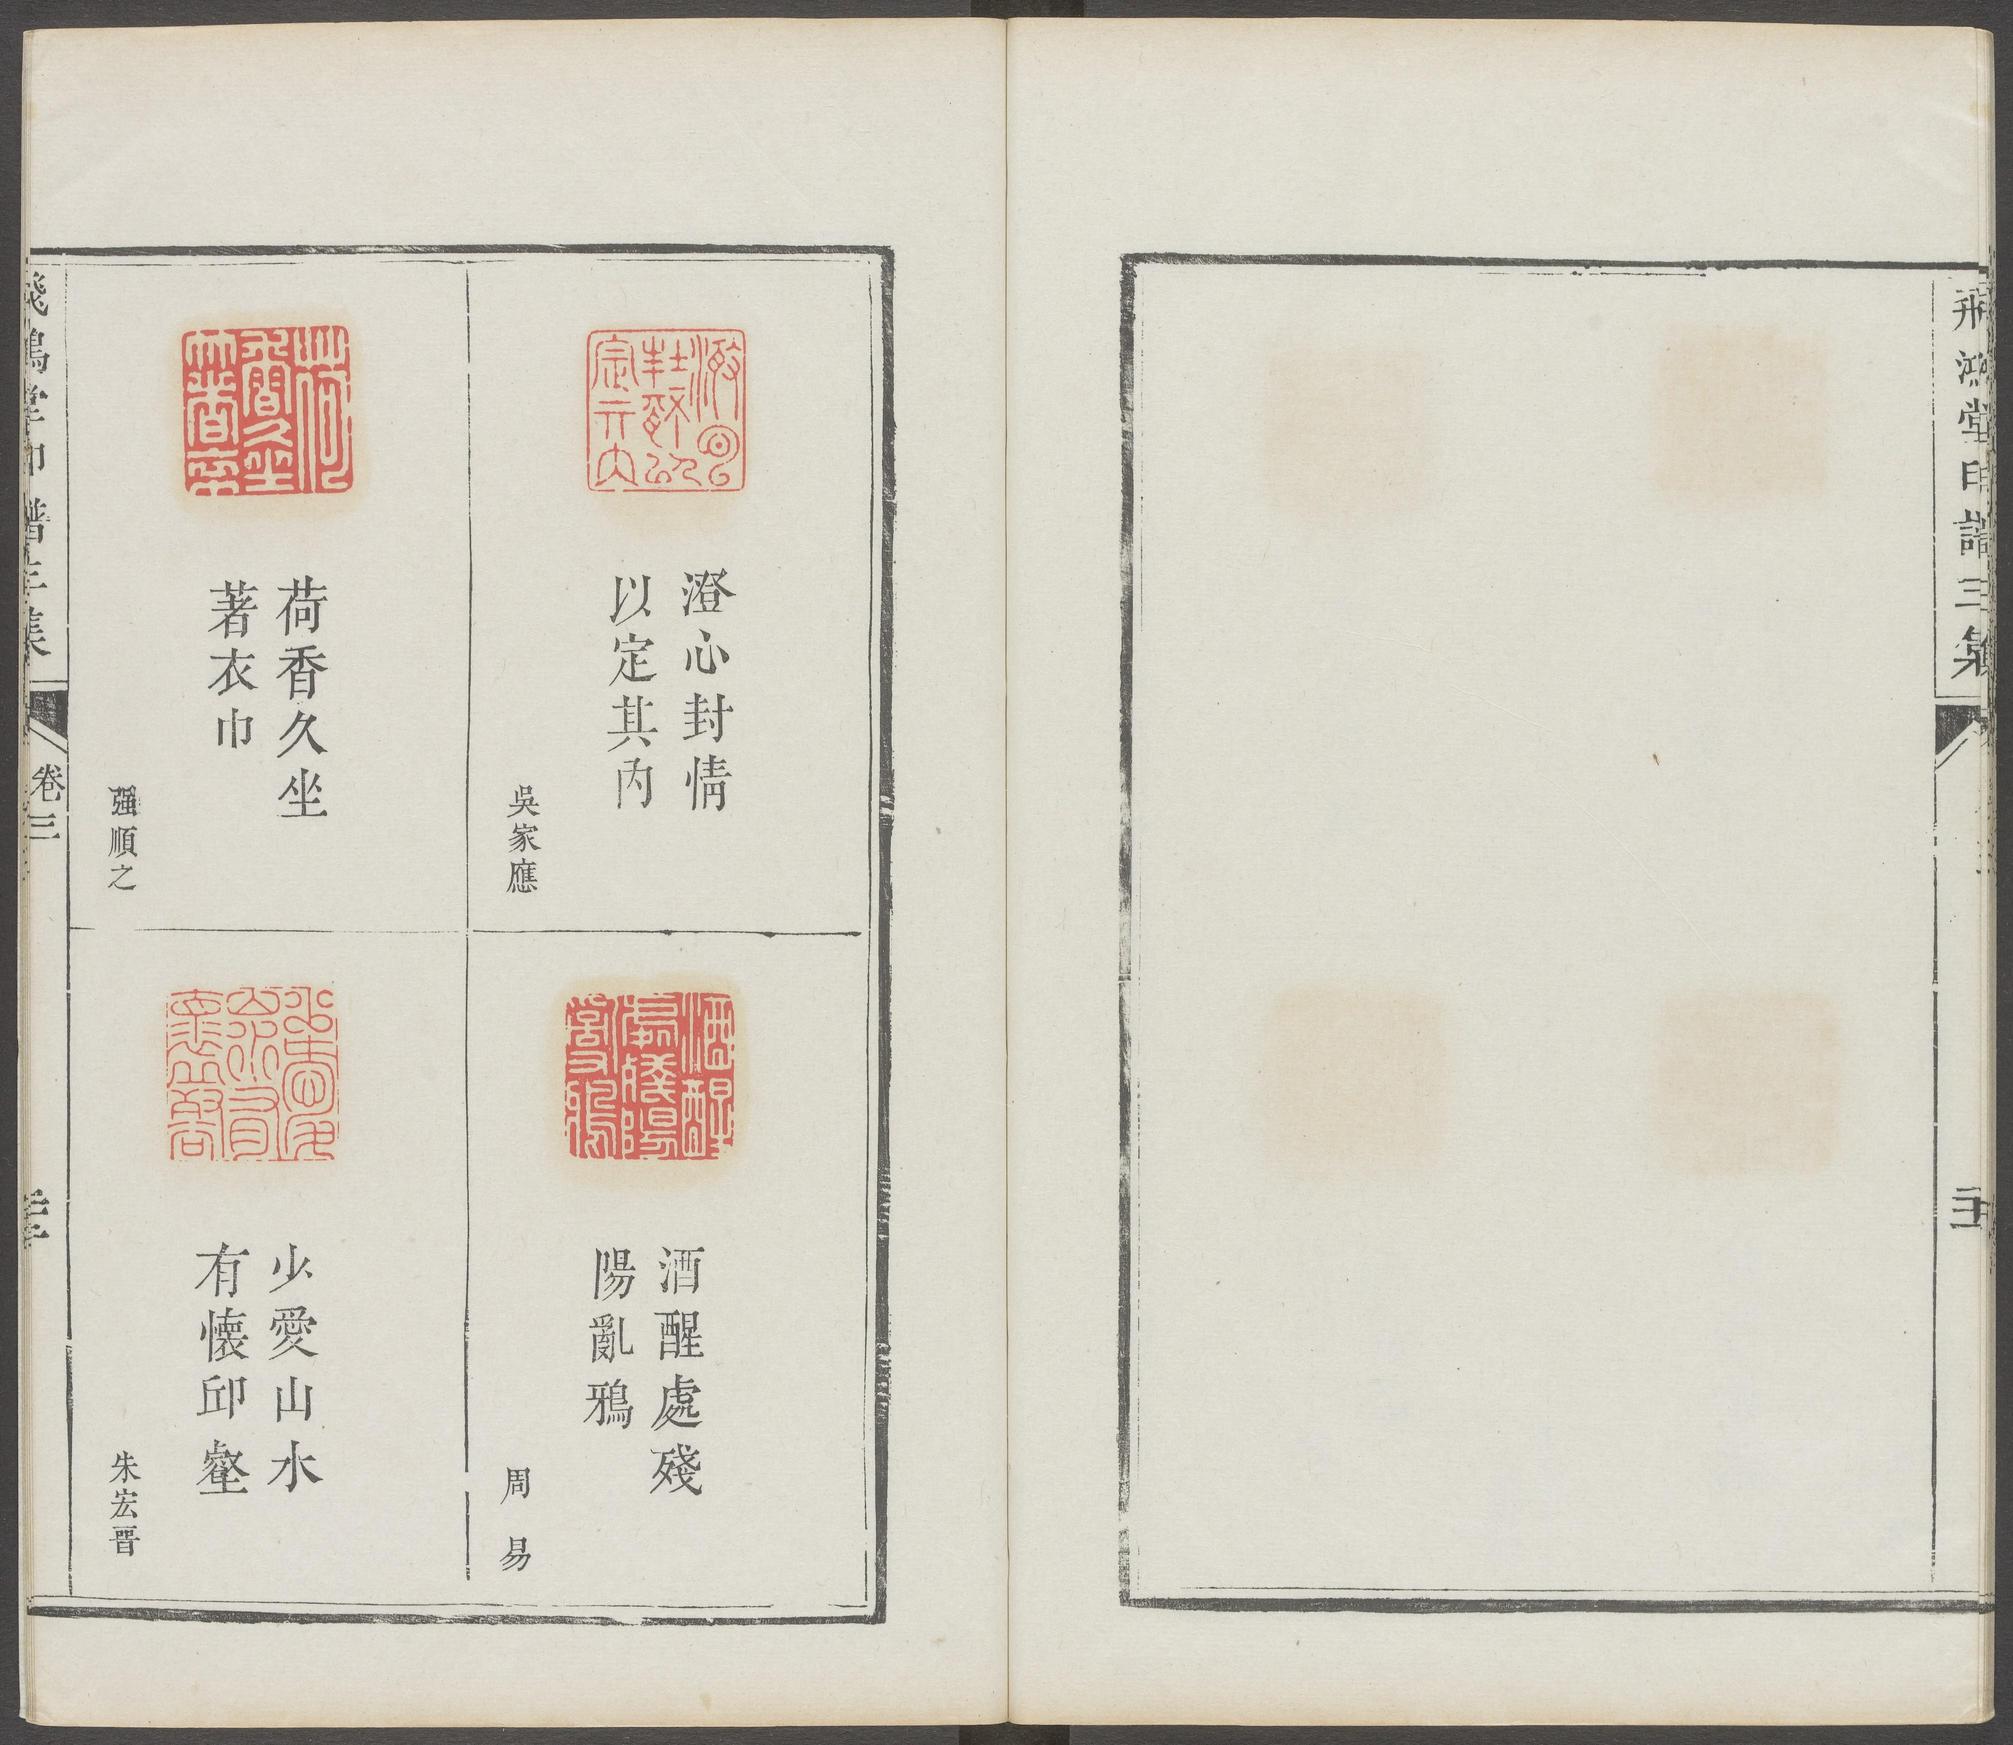 飛鴻堂印譜三集
澄心封情
以定其內
吳家應
酒醒處殘
陽亂鴉
周易
荷香久坐
著衣巾
强順之
少愛山水
有懐邱壑
朱宏晋
飛鴻堂印譜三集
卷三